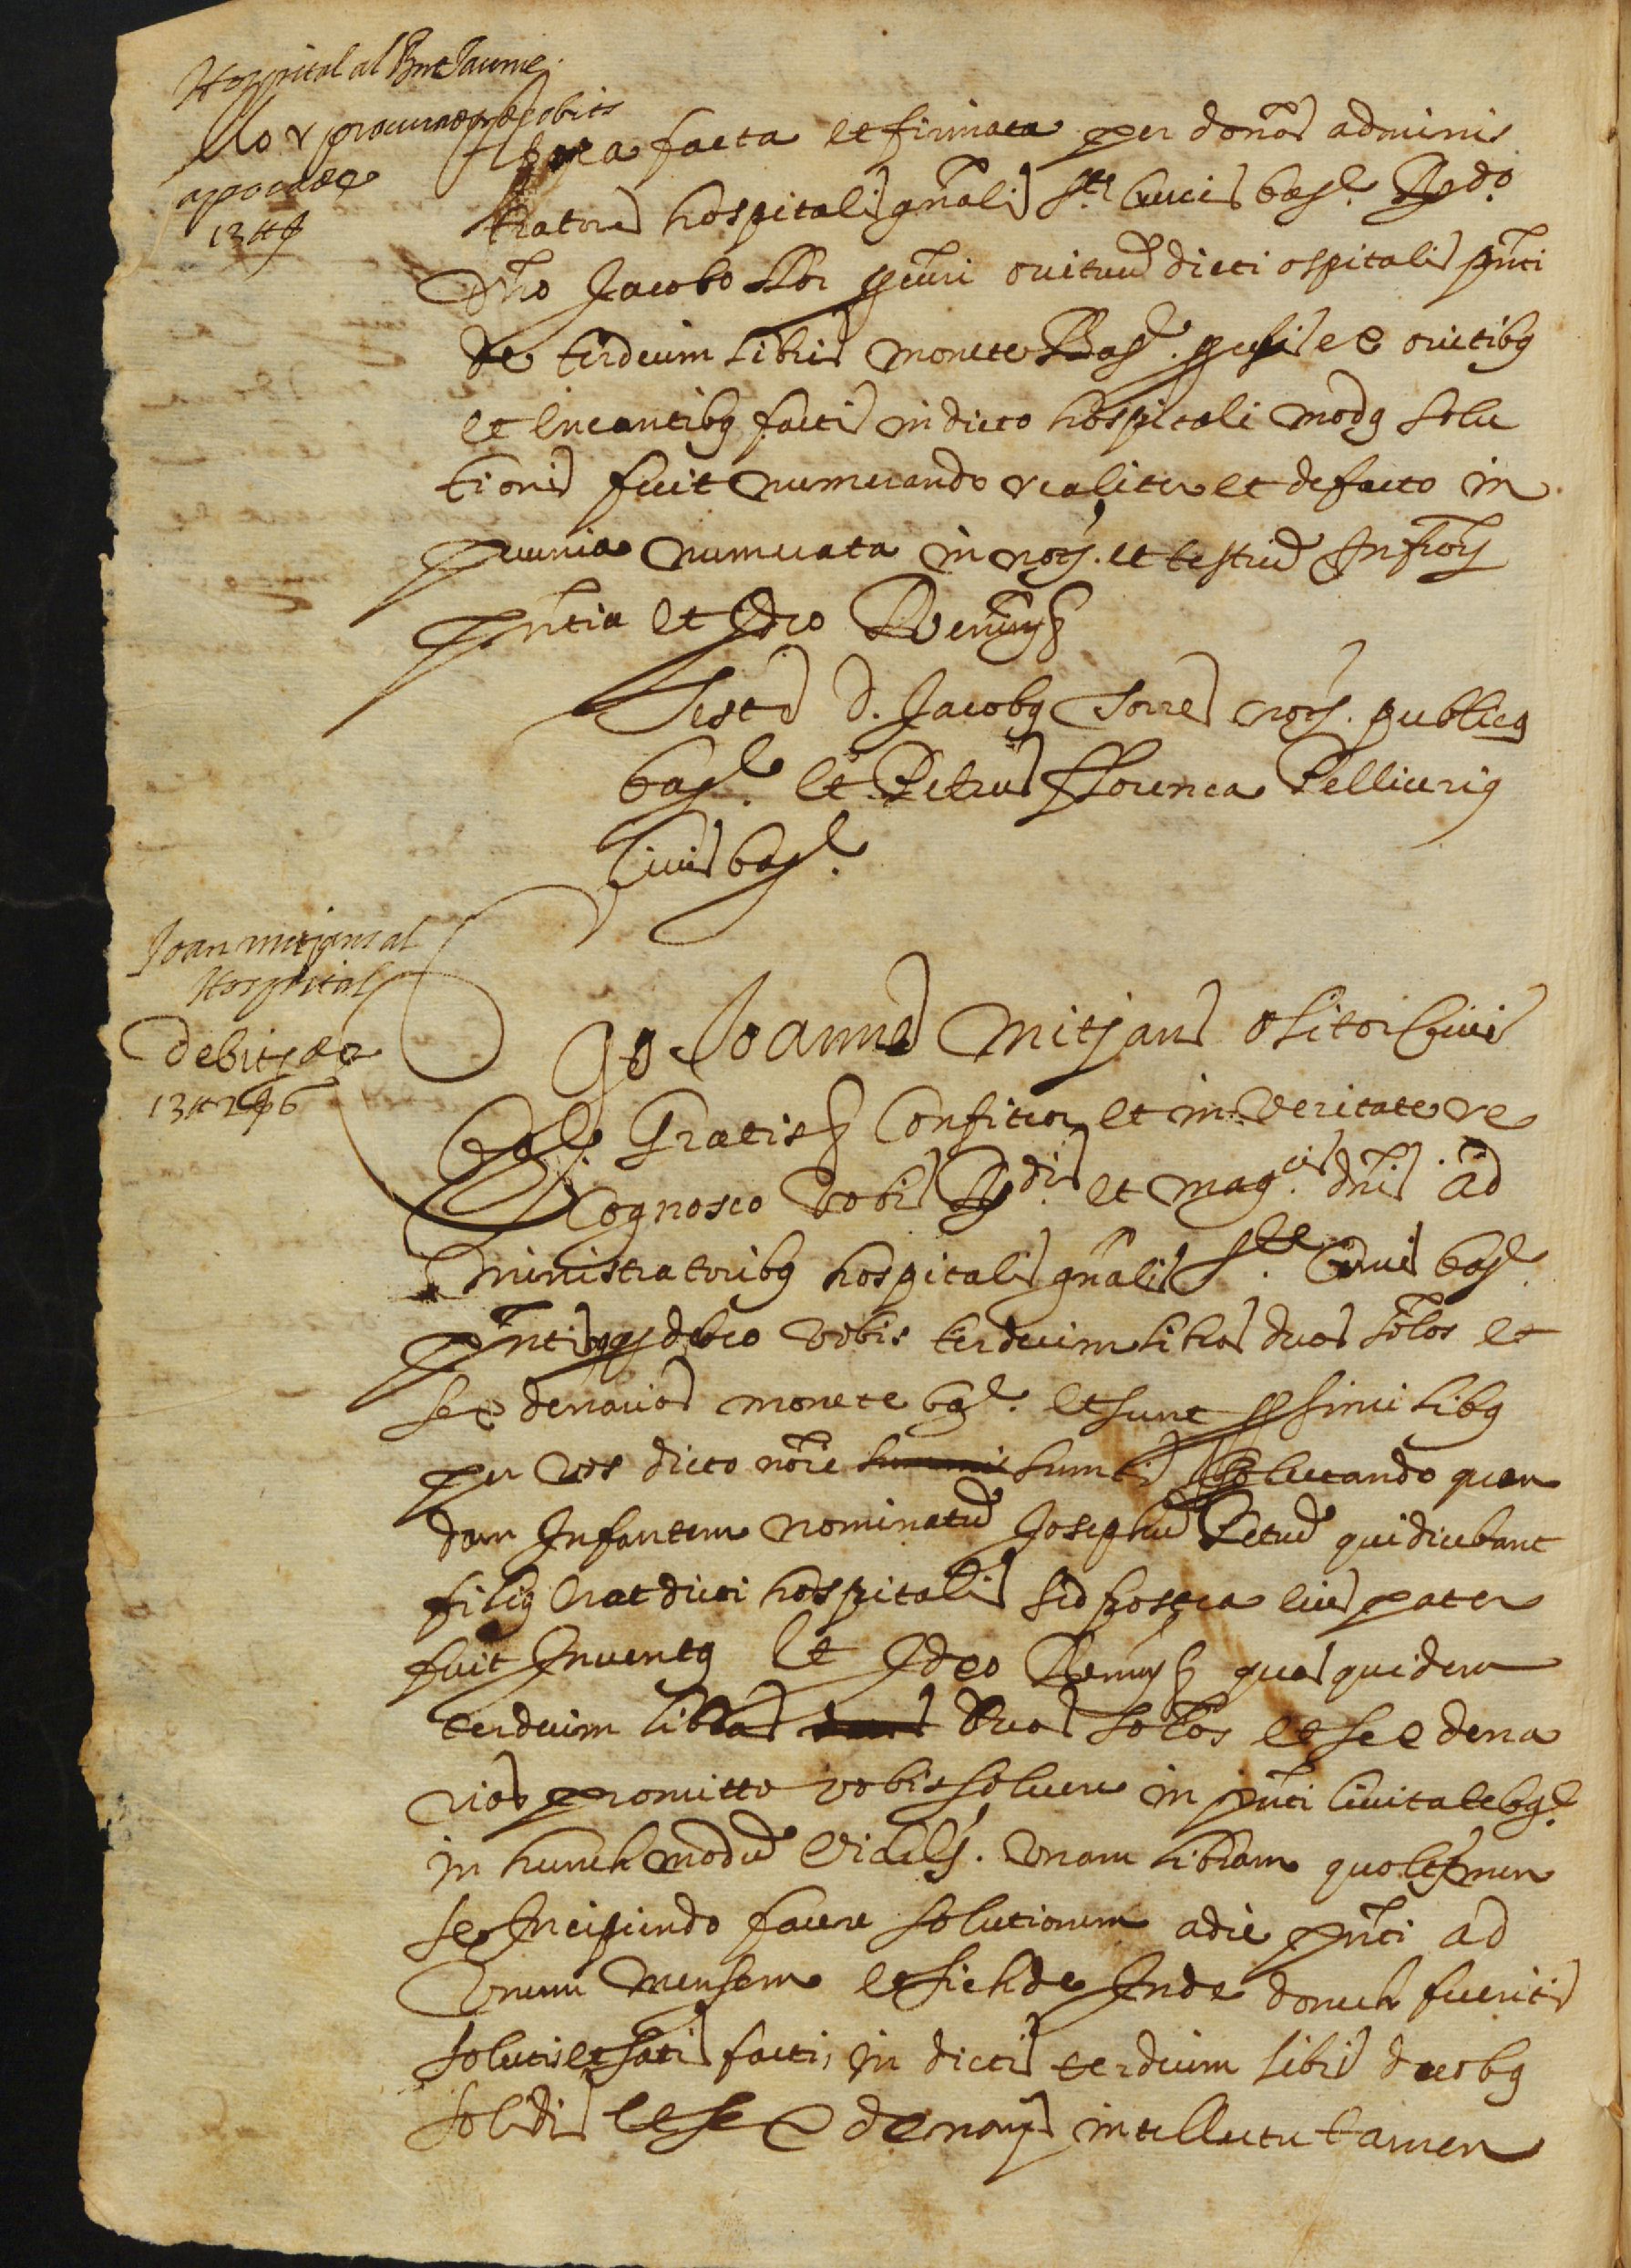 Hospital al Rnt Jaume
Llor procurador de obits
apocha
13 ₶
Apoca facta et firmata per dnos adminis
tratores hospitalis gnalis Ste Crucis bar. Rdo
Dno Jacobo Llor pcuri obituum dicti ospitalis pnti
de terdecim libris monete Bar. ex obitibus
et encantibus factis in dicto hospitali modus solu
tionis fuit numerando realiter et de facto in
pecunia numerata in noty. et testium Infrory
pntia et Ideo Renuns
Testes d. Jacobus Torres noty. publicus
bar. et Petrus Florença Pelliceriq
Civis bar.
Joan mitjans al
Hospital
Debitori
13 ₶ 2 6
Ego Joannes Mitjans olitor Civis
bar. Gratis Confiteor et in veritate re
Cognosco vobis Rdis et magcis dnis ad
ministratoribus hospitalis gnalis Ste Crucis bar.
pntibus debeo vobis terdecim libras duos solos et
sex denarios monete bar. et sunt p similibus
per vos dicto noie sumtis alletando quen
dam Infantem nominatum Josephum Petrum qui dicebant
filius erat dicti hospitalis sed postea eius pater
fuit Inventus et Ideo Renuns quas quidem
terdecim libras duos solos et sex dena
rios promitto vobis solvere in pnti Civitate bar.
in hunch modum videlt. unam libram quolt men
se Incipiendo facere solutionem a die pnti ad
Unum mensem et sich de Inde donech fueritis
soluti et satis facti, in dictis terdecim libris duobus
solidis et sex denarijs intellectu tamen